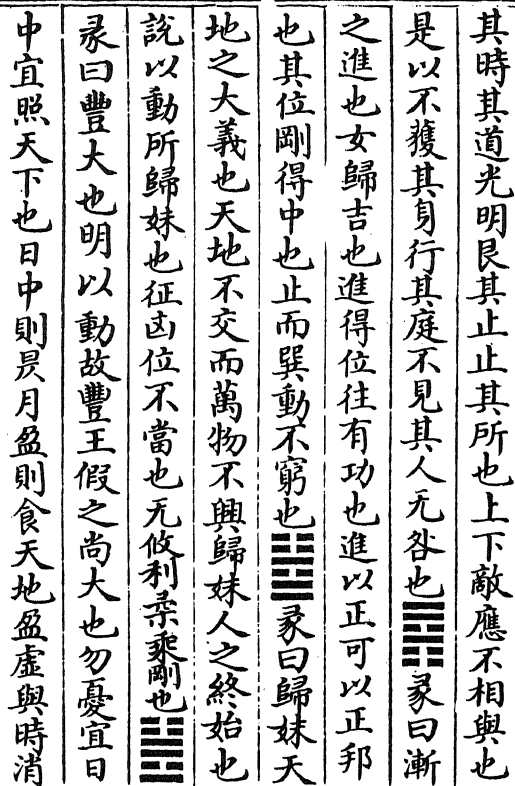 其時其道光明艮其止止其所也上下敵應不相與也
是以不獲其身行其庭不見其人无咎也䷴彖曰漸
之進也女歸吉也進得位往有功也進以正可以正邦
也其位剛得中也止而巽動不窮也䷵彖曰歸妹天
地之大義也天地不交而萬物不興歸妹人之終始也
說以動所歸妹也征凶位不當也无攸利柔乘剛也䷶
彖曰豐大也明以動故豐王假之尚大也勿憂宜日
中宜照天下也日中則昃月盈則食天地盈虛與時消